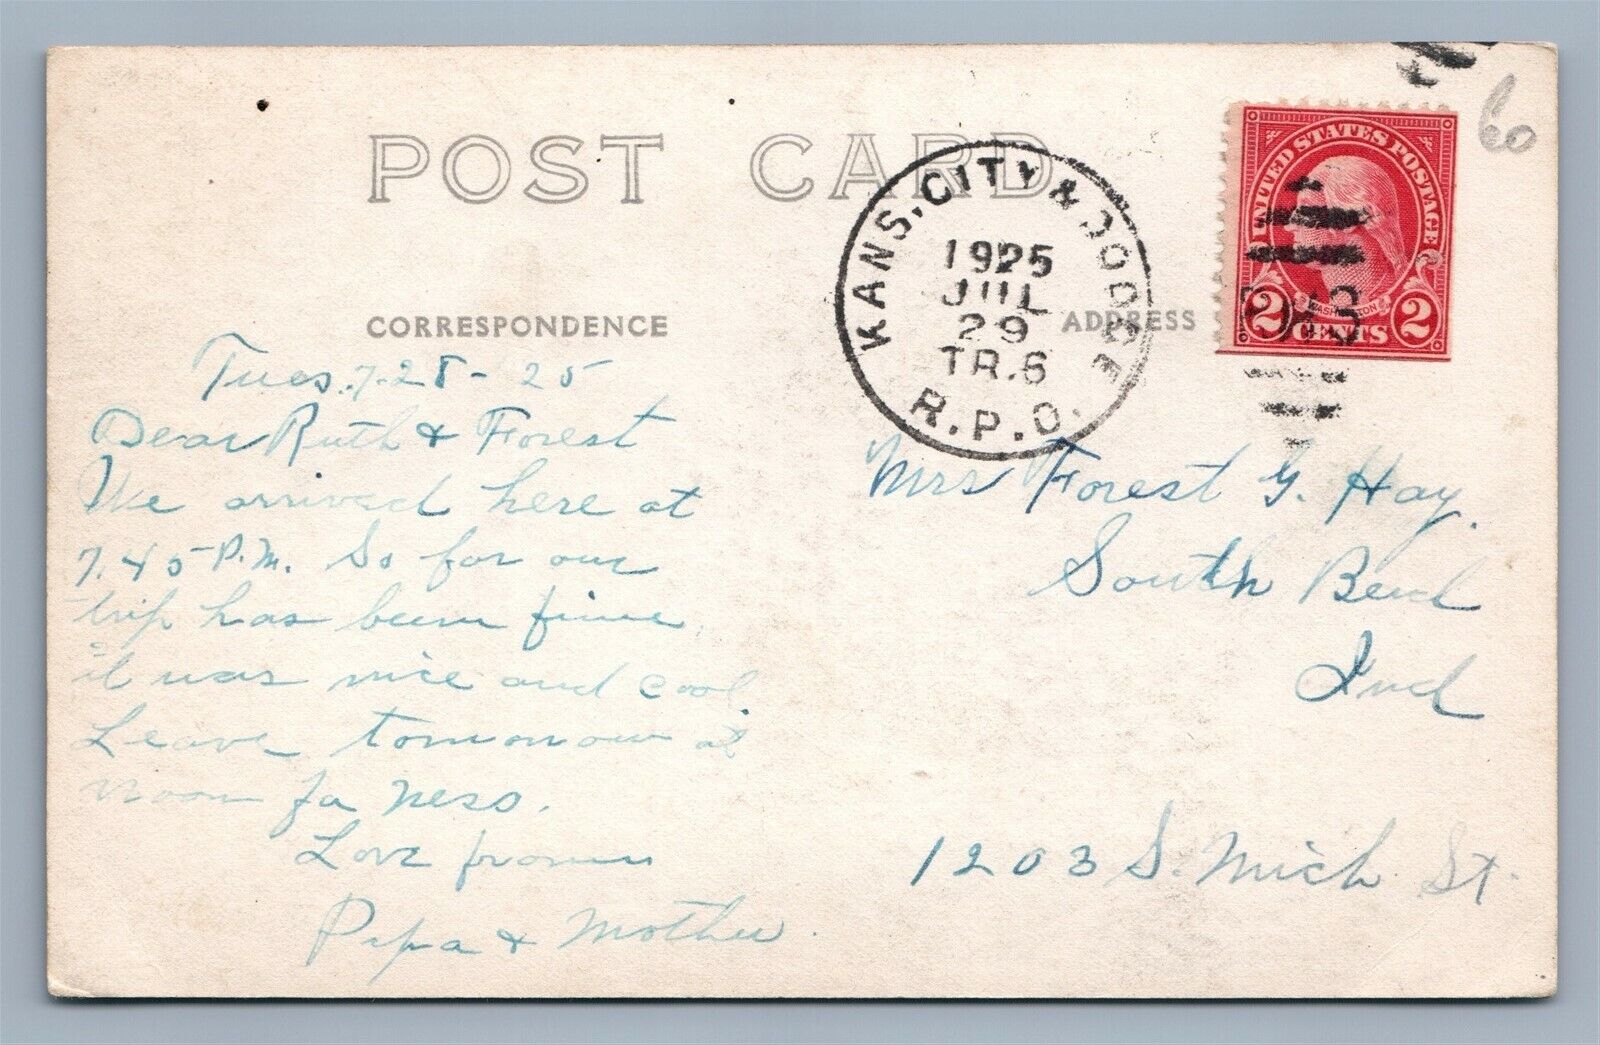 POST CARD
60
UNITED STATES POSTAGE
WASHINGTON
2 CENTS 2
KANS. CITY & DODGE
1925
JUL
29
TR.6
R.P.O.
CORRESPONDENCE
ADDRESS
Tues. 7-28-25
Dear Ruth & Forest
We arrived here at
7.45 P.M. So far our
trip has been fine
it was nice and cool.
Leave tomorrow at
noon for Ness.
Love from
Papa & Mother.
Mrs Forest G. Hay.
South Bend
Ind
1203 S. Mich St.